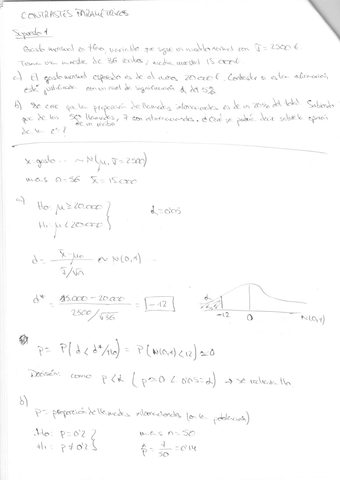 CONTRASTES PARAMÉTRICOS
Supuesto 1
Gasto mensual variable que sigue normal con σ = 2500 €
Toma una muestra de 36 media muestral 15.000 €
a) El gasto mensual esperado es de al menos 20.000 €.
está justificada con un nivel de significación α del 5%
b) Se cree que la proporción de llamadas internacionales es de un 20% del total. Sabiendo
que de las 50 llamadas, 7 son internacionales. ¿Qué se podría decir sobre la
x = gasto... ~ N(μ, σ = 2500)
m.a.s n=36 x̄ = 15.000
a)
H₀: μ ≥ 20.000
H₁: μ < 20.000
α = 0'05
d = x̄ - μ₀ / σ/√n ~ N(0,1)
d* = 15.000 - 20.000 / 2500/√36 = -12
α
-12 0 N(0,1)
p = P(d < d*/H₀) = P(N(0,1) < 12) ≃ 0
Decisión: como p < α (p = 0 < 0'05 = α) → se rechaza H₀
b)
p = proporción de llamadas internacionales (en la población)
H₀: p = 0'2
H₁: p ≠ 0'2
m.a.s n = 50
p̂ = 7/50 = 0'14